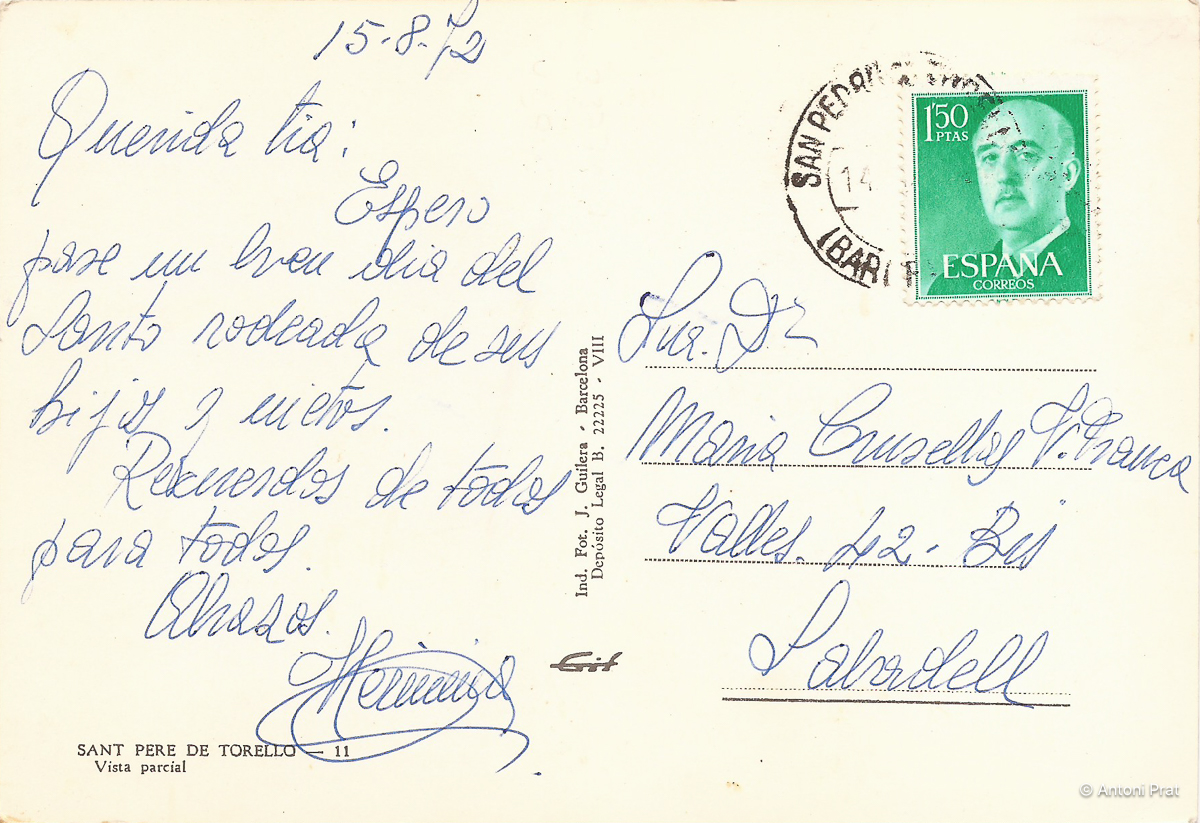 15-8-72
Querida tia:
Espero
pase un buen dia del
Santo rodeada de sus
hijos y nietos.
Recuerdos de todos
para todos.
Abrazos.
Herminia
SANT PERE DE TORELLO — 11
Vista parcial
Ind. Fot. J. Guilera - Barcelona
Depósito Legal B. 22225 - VIII
SAN PEDRO
14
(BAR
1'50
PTAS
ESPAÑA
CORREOS
Sra. Dª
Maria Crusellas V. Franca
Valles. 42 - Bis
Sabadell
© Antoni Prat